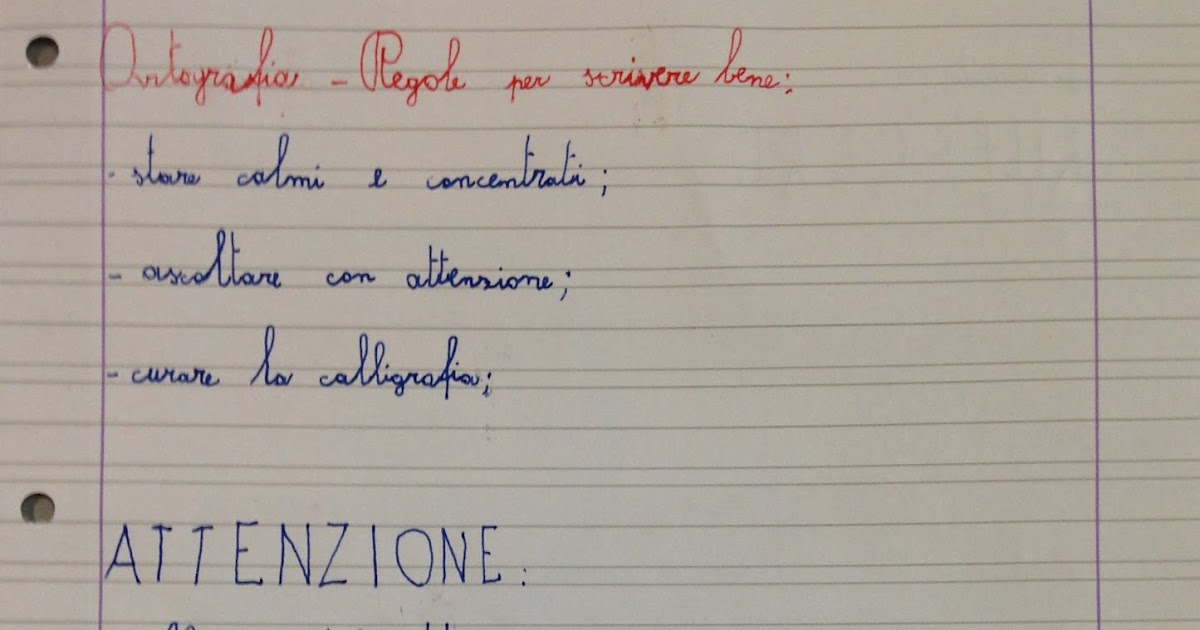 Ortografia - Regole per scrivere bene:
- stare calmi e concentrati;
- ascoltare con attenzione;
- curare la calligrafia;
ATTENZIONE: